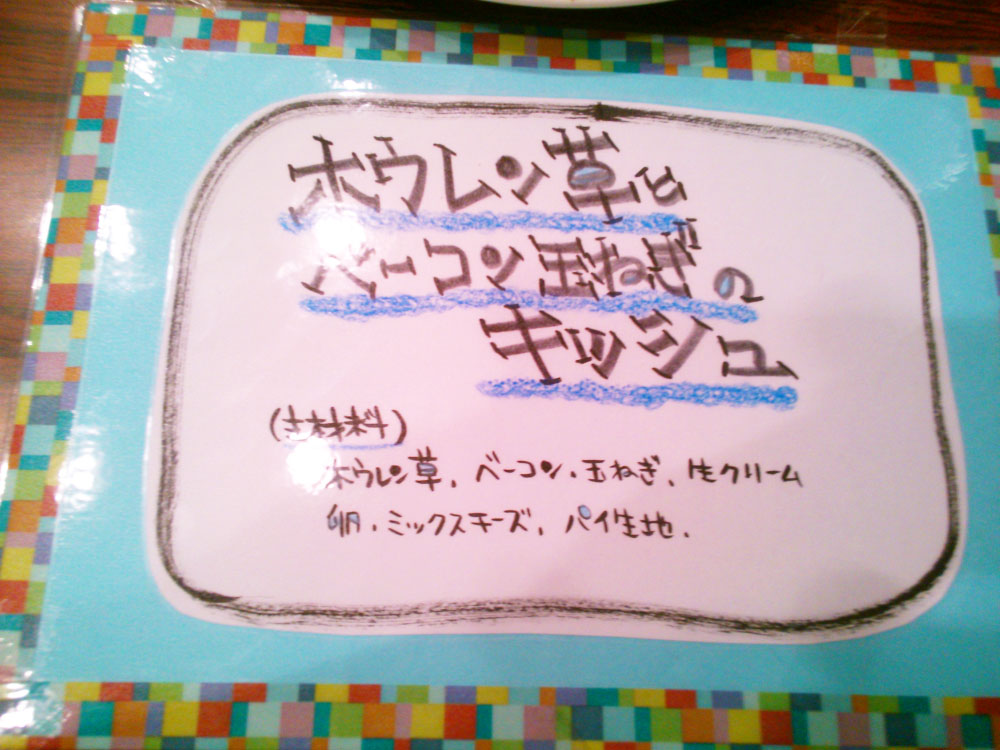 ホウレン草と
ベーコン玉ねぎの
キッシュ
(材料)
ホウレン草、ベーコン、玉ねぎ、生クリーム
卵、ミックスチーズ、パイ生地.